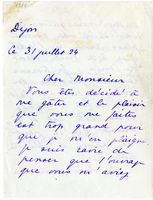 Dijon
Ce 31 juillet 24
Cher Monsieur
Vous êtes décidé à
me gâter et le plaisir
que vous me faites
est trop grand pour
que je m'en plaigne
je suis ravie de
penser que l'ouvrage
que vous m'aviez